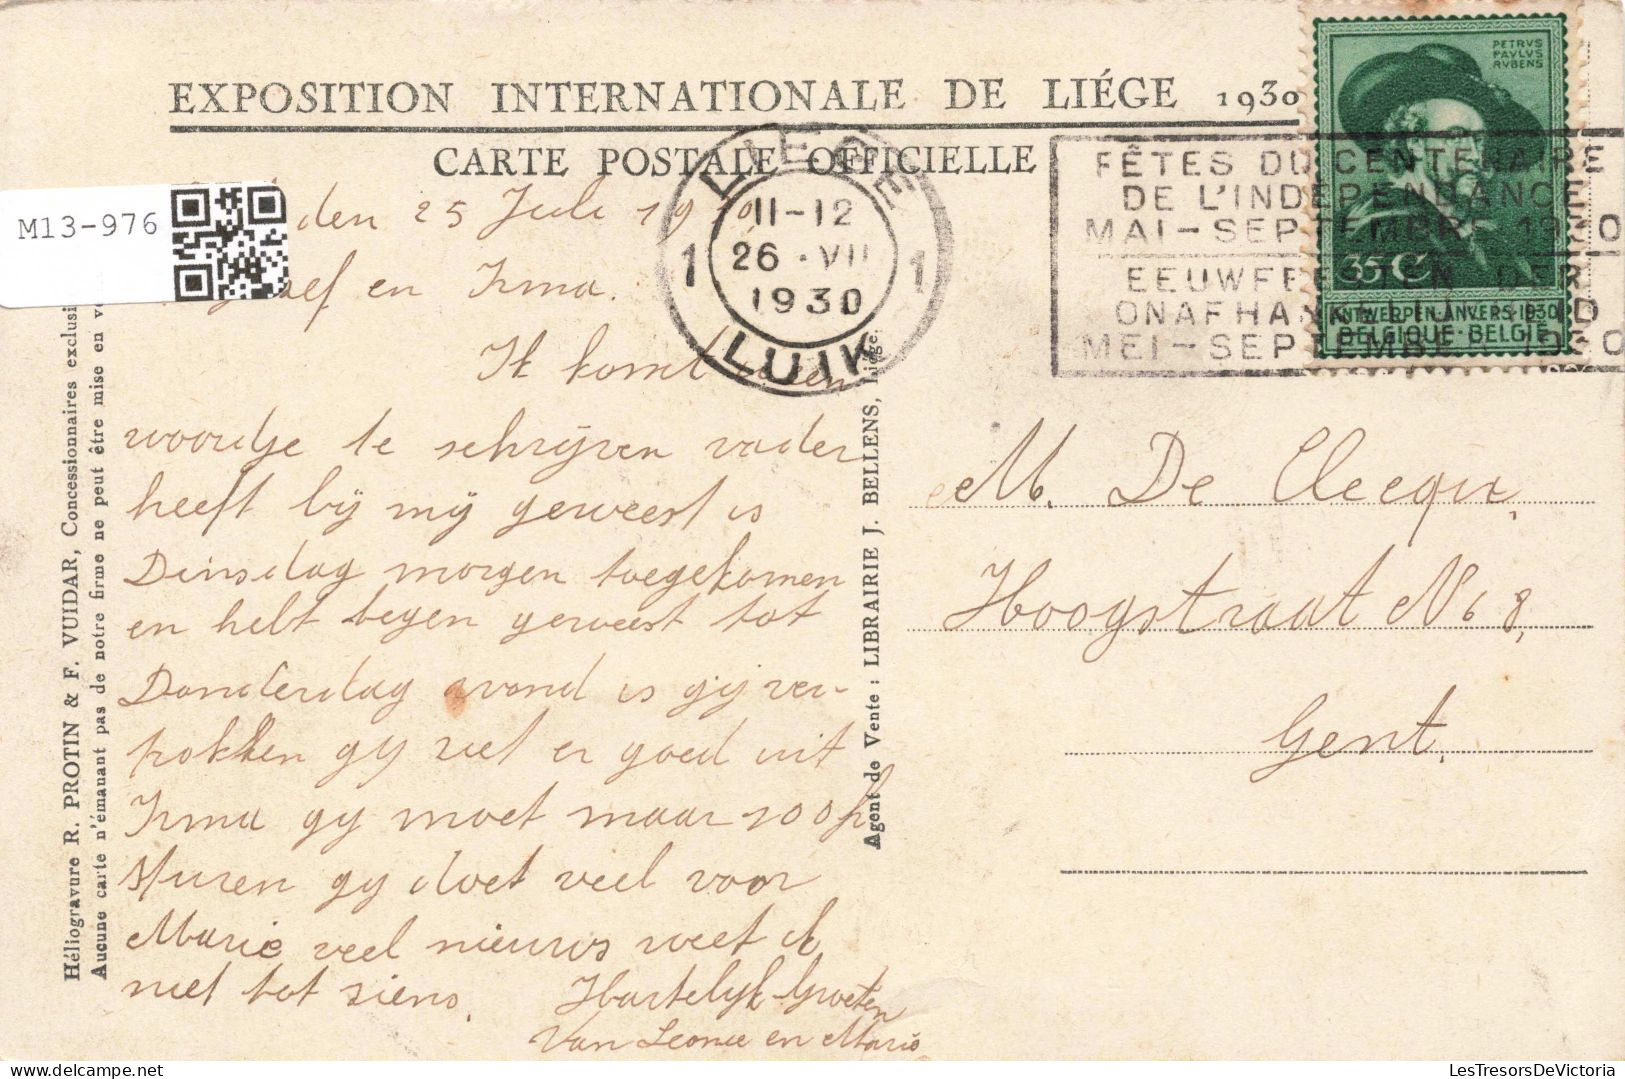 EXPOSITION INTERNATIONALE DE LIÉGE 1930
CARTE POSTALE OFFICIELLE
PETRVS
PAVLVS
RVBENS
35 C
ANTWERPEN·ANVERS·1930
BELGIQUE·BELGIË
LIEGE
1 1
11-12
26·VII
1930
LUIK
FÊTES DU CENTENAIRE
DE L'INDÉPENDANCE
MAI-SEPTEMBRE 1930
EEUWFEESTEN DER
ONAFHANK D
MEI-SEPTEMBE 1930
M13-976
den 25 Juli 19
en Irma.
Ik komt u een
woordje te schrijven vader
heeft bij mij geweest is
Dinsdag morgen toegekomen
en helt begen geweest tot
Donderdag avond is gij ver-
trokken gij ziet er goed uit
Irma gij moet maar 100 fr
sturen gij doet veel voor
Marie veel nieuws weet ik
niet tot ziens.
Hartelijk Groeten
Van Leonie en Marie
M. De Clecqix,
Hoogstraat No 8,
Gent.
Héliogravure R. PROTIN & F. VUIDAR, Concessionnaires exclusi
Aucune carte n'émanant pas de notre firme ne peut être mise en ve
Agent de Vente : LIBRAIRIE J. BELLENS, Liége.
LesTresorsDeVictoria